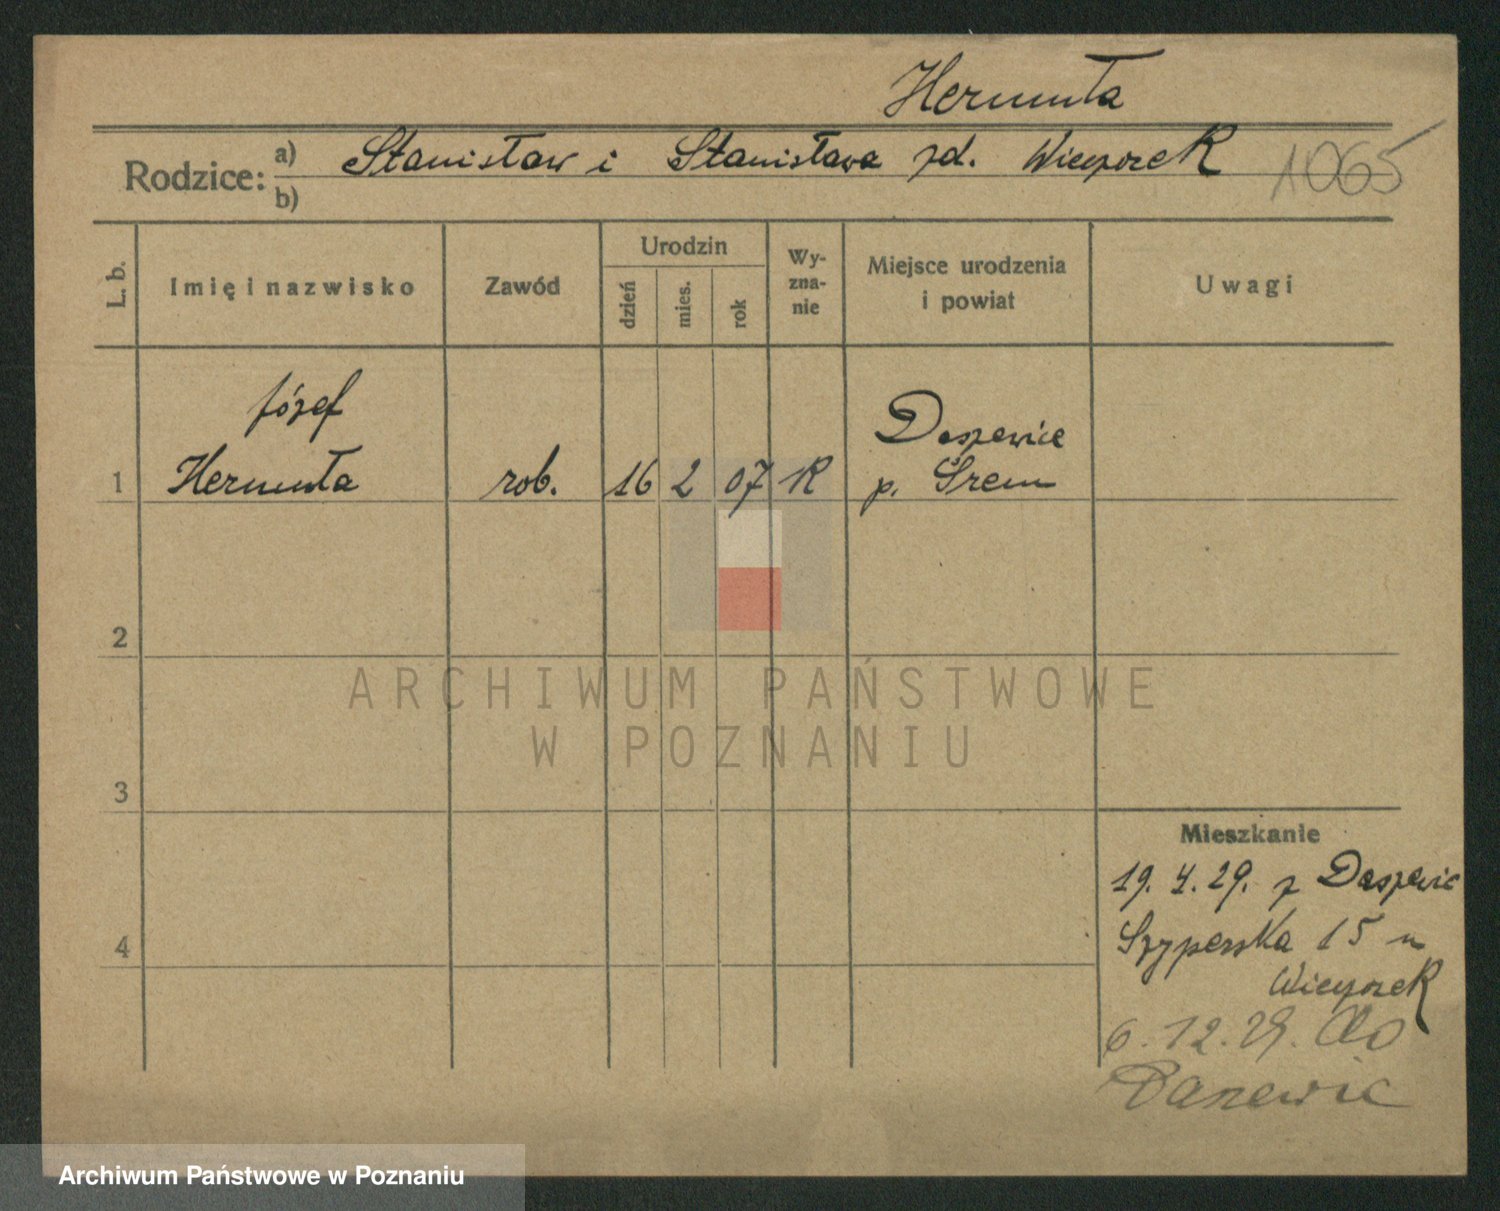 Hermuła
Rodzice: a) Stanisław i Stanisława zd. Wieczorek 1065
b)
L. b. Imię i nazwisko Zawód Urodzin dzień mies. rok Wy-zna-nie Miejsce urodzenia i powiat Uwagi
Józef
Daszewice
1 Hermuła rob. 16 2 07 R p. Śrem
2
ARCHIWUM PAŃSTWOWE
W POZNANIU
3
Mieszkanie
19. 4. 29. z Daszewic
4 Szyperska 15 u
Wieczorek
6. 12. 29. do
Daszewic
Archiwum Państwowe w Poznaniu